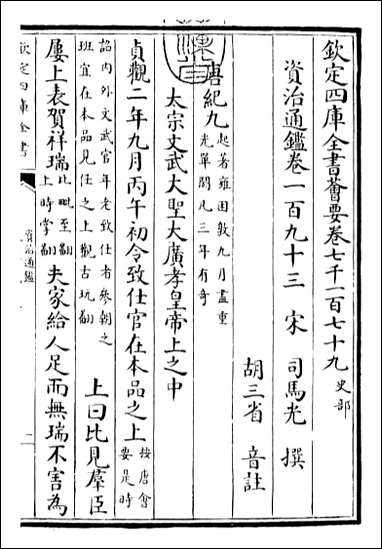 欽定四庫全書薈要卷七千一百七十九 史部
資治通鑑卷一百九十三 宋 司馬光 撰
胡三省 音註
唐紀九 起著雍困敦九月盡重
光單閼凡三年有奇
太宗文武大聖大廣孝皇帝上之中
貞觀二年九月丙午初令致仕官在本品之上 按唐會
要是時
詔内外文武官年老致仕者參朝之
班宜在本品見任之上觀古玩翻 上曰比見羣臣
屢上表賀祥瑞 比毗至翻
上時掌翻 夫家給人足而無瑞不害為
欽定四庫全書
資治通鑑
二